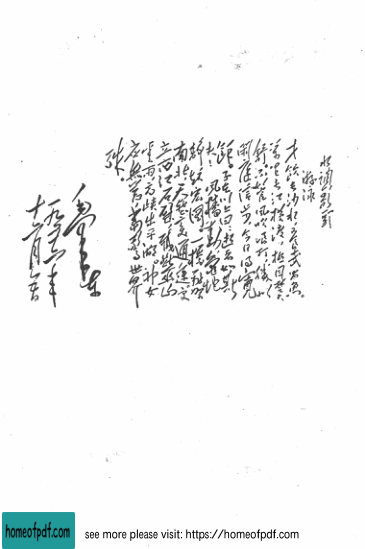 水调歌头
游泳
才饮长沙水，又食武昌鱼。
万里长江横渡，极目楚天
舒。不管风吹浪打，胜似
闲庭信步，今日得宽
馀。子在川上曰：逝者如斯
夫！风樯动，龟蛇
静，起宏图。一桥飞架
南北，天堑变通途。更
立西江石壁，截断巫山
云雨，高峡出平湖。神女
应无恙，当惊世界
殊。
毛泽东
一九五六年
十二月五日
homeofpdf.com
see more please visit: https://homeofpdf.com